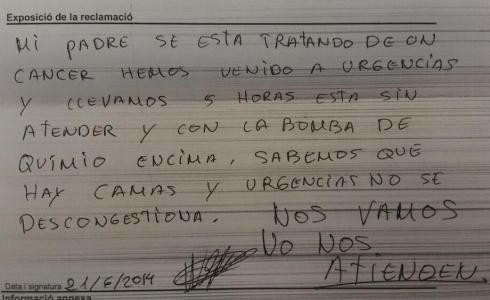 Exposició de la reclamació
MI PADRE SE ESTA TRATANDO DE UN
CANCER HEMOS VENIDO A URGENCIAS
Y LLEVAMOS 5 HORAS ESTA SIN
ATENDER Y CON LA BOMBA DE
QUIMIO ENCIMA, SABEMOS QUE
HAY CAMAS Y URGENCIAS NO SE
DESCONGESTIONA. NOS VAMOS
NO NOS
ATIENDEN.
Data i signatura 21/6/2014
Informació annexa